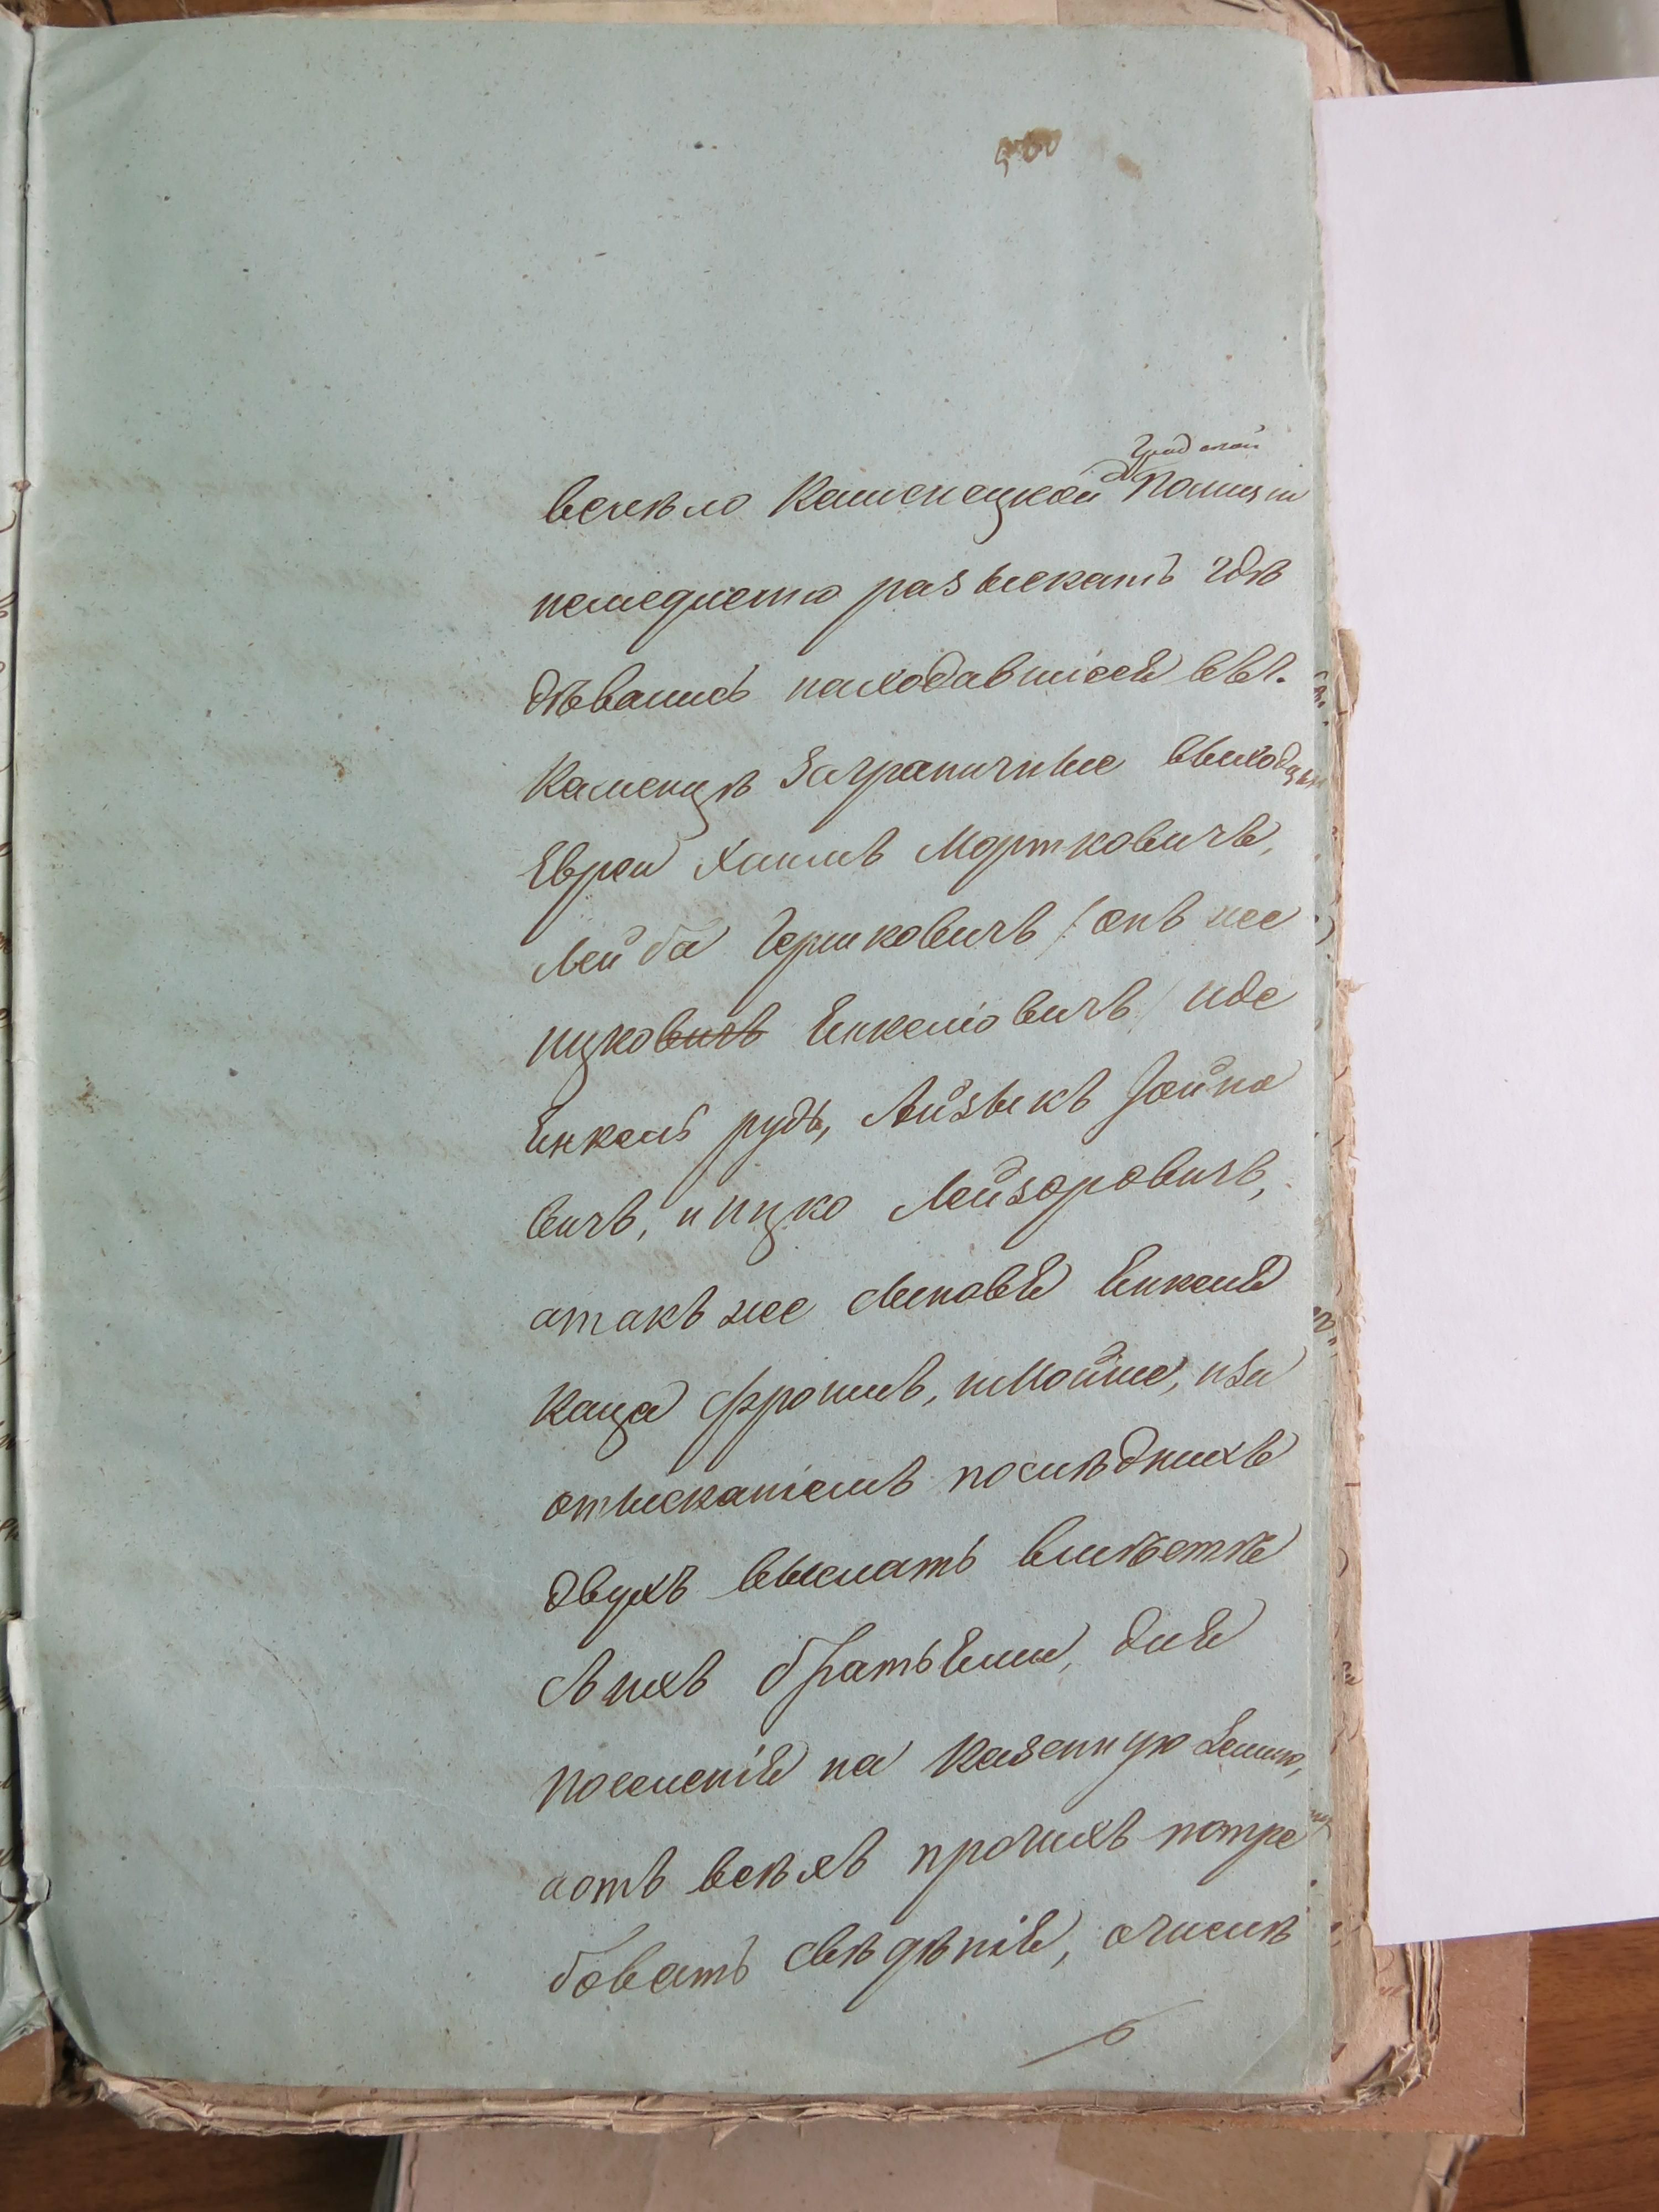 Градской
велѣло Каменецкой Полиціи
немедленно разыскать гдѣ
дѣвались находавшіеся въ г.
Каменцѣ заграничные выходцы
Евреи Хаимъ Мортковичъ,
Лейба Гершковичъ / онъ же
Ицковичъ Енкеліовичъ / иде
Енкель рудъ, Айзыкъ Зойно
вичъ, и Ицко Лейзоровичъ,
атакъ же сыновья Енкеля
Каца Фроимъ, иМойше, иза
отысканіемъ послѣднихъ
двухъ выслать вмѣстѣ
съ ихъ братьями, для
поселенія на казенную землю,
аотъ всѣхъ прочихъ потре
бовать свѣдѣнія, очислѣ